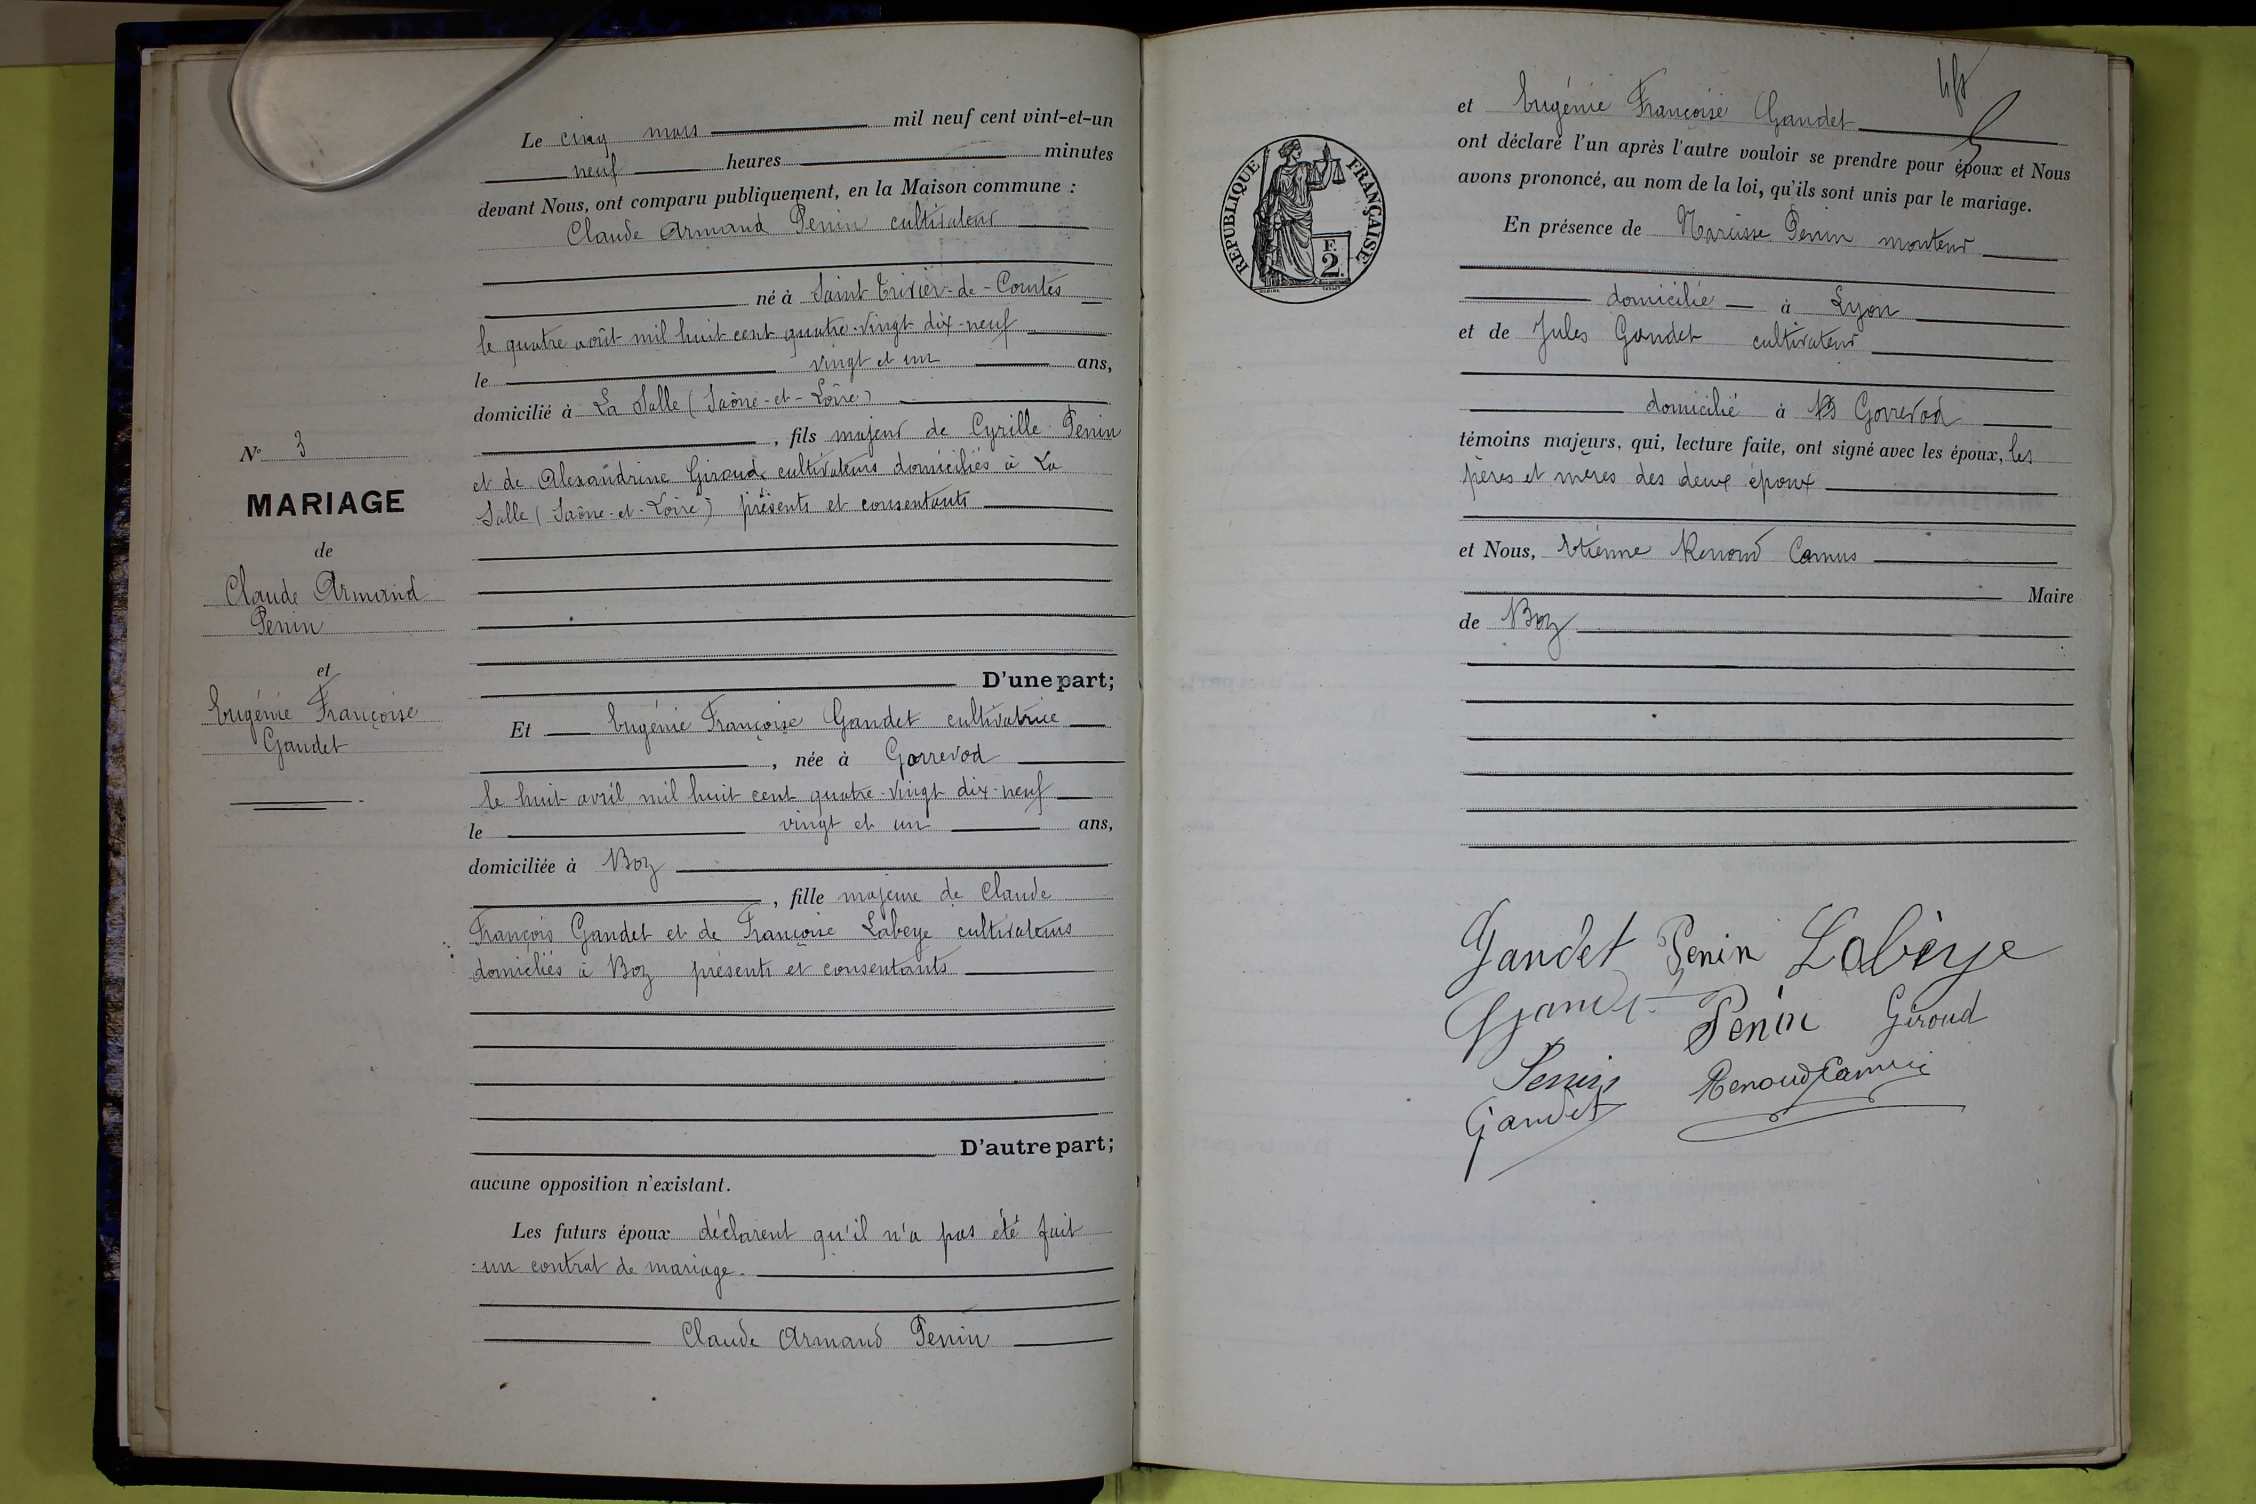 N° 3
MARIAGE
de
Claude Armand
Penin
et
Eugénie Françoise
Gandet
Le cinq mars mil neuf cent vint-et-un
neuf heures minutes
devant Nous, ont comparu publiquement, en la Maison commune :
Claude Armand Penin cultivateur
né à Saint Trivier-de-Courtes
le quatre août mil huit cent quatre-vingt dix-neuf
le vingt et un ans,
domicilié à La Salle (Saône-et-Loire)
, fils majeur de Cyrille Penin
et de Alexandrine Giroud cultivateurs domiciliés à La
Salle (Saône-et-Loire) présents et consentants
D'une part;
Et Eugénie Françoise Gandet cultivatrice
, née à Gorrevod
le huit avril mil huit cent quatre-vingt dix-neuf
le vingt et un ans,
domiciliée à Boz
, fille majeure de Claude
François Gandet et de Françoise Labeye cultivateurs
domiciliés à Boz présents et consentants
D'autre part;
aucune opposition n'existant.
Les futurs époux déclarent qu'il n'a pas été fait
un contrat de mariage.
Claude Armand Penin
RÉPUBLIQUE FRANÇAISE
F.
2.
et Eugénie Françoise Gandet
ont déclaré l'un après l'autre vouloir se prendre pour époux et Nous
avons prononcé, au nom de la loi, qu'ils sont unis par le mariage.
En présence de Narcisse Penin monteur
domicilié à Lyon
et de Jules Gandet cultivateur
domicilié à Gorrevod
témoins majeurs, qui, lecture faite, ont signé avec les époux, les
pères et mères des deux époux
et Nous, Etienne Renoud Camus
Maire
de Boz
Gandet Penin Labeye
Gandet Penin Giroud
Penin Renoud Camus
Gandet